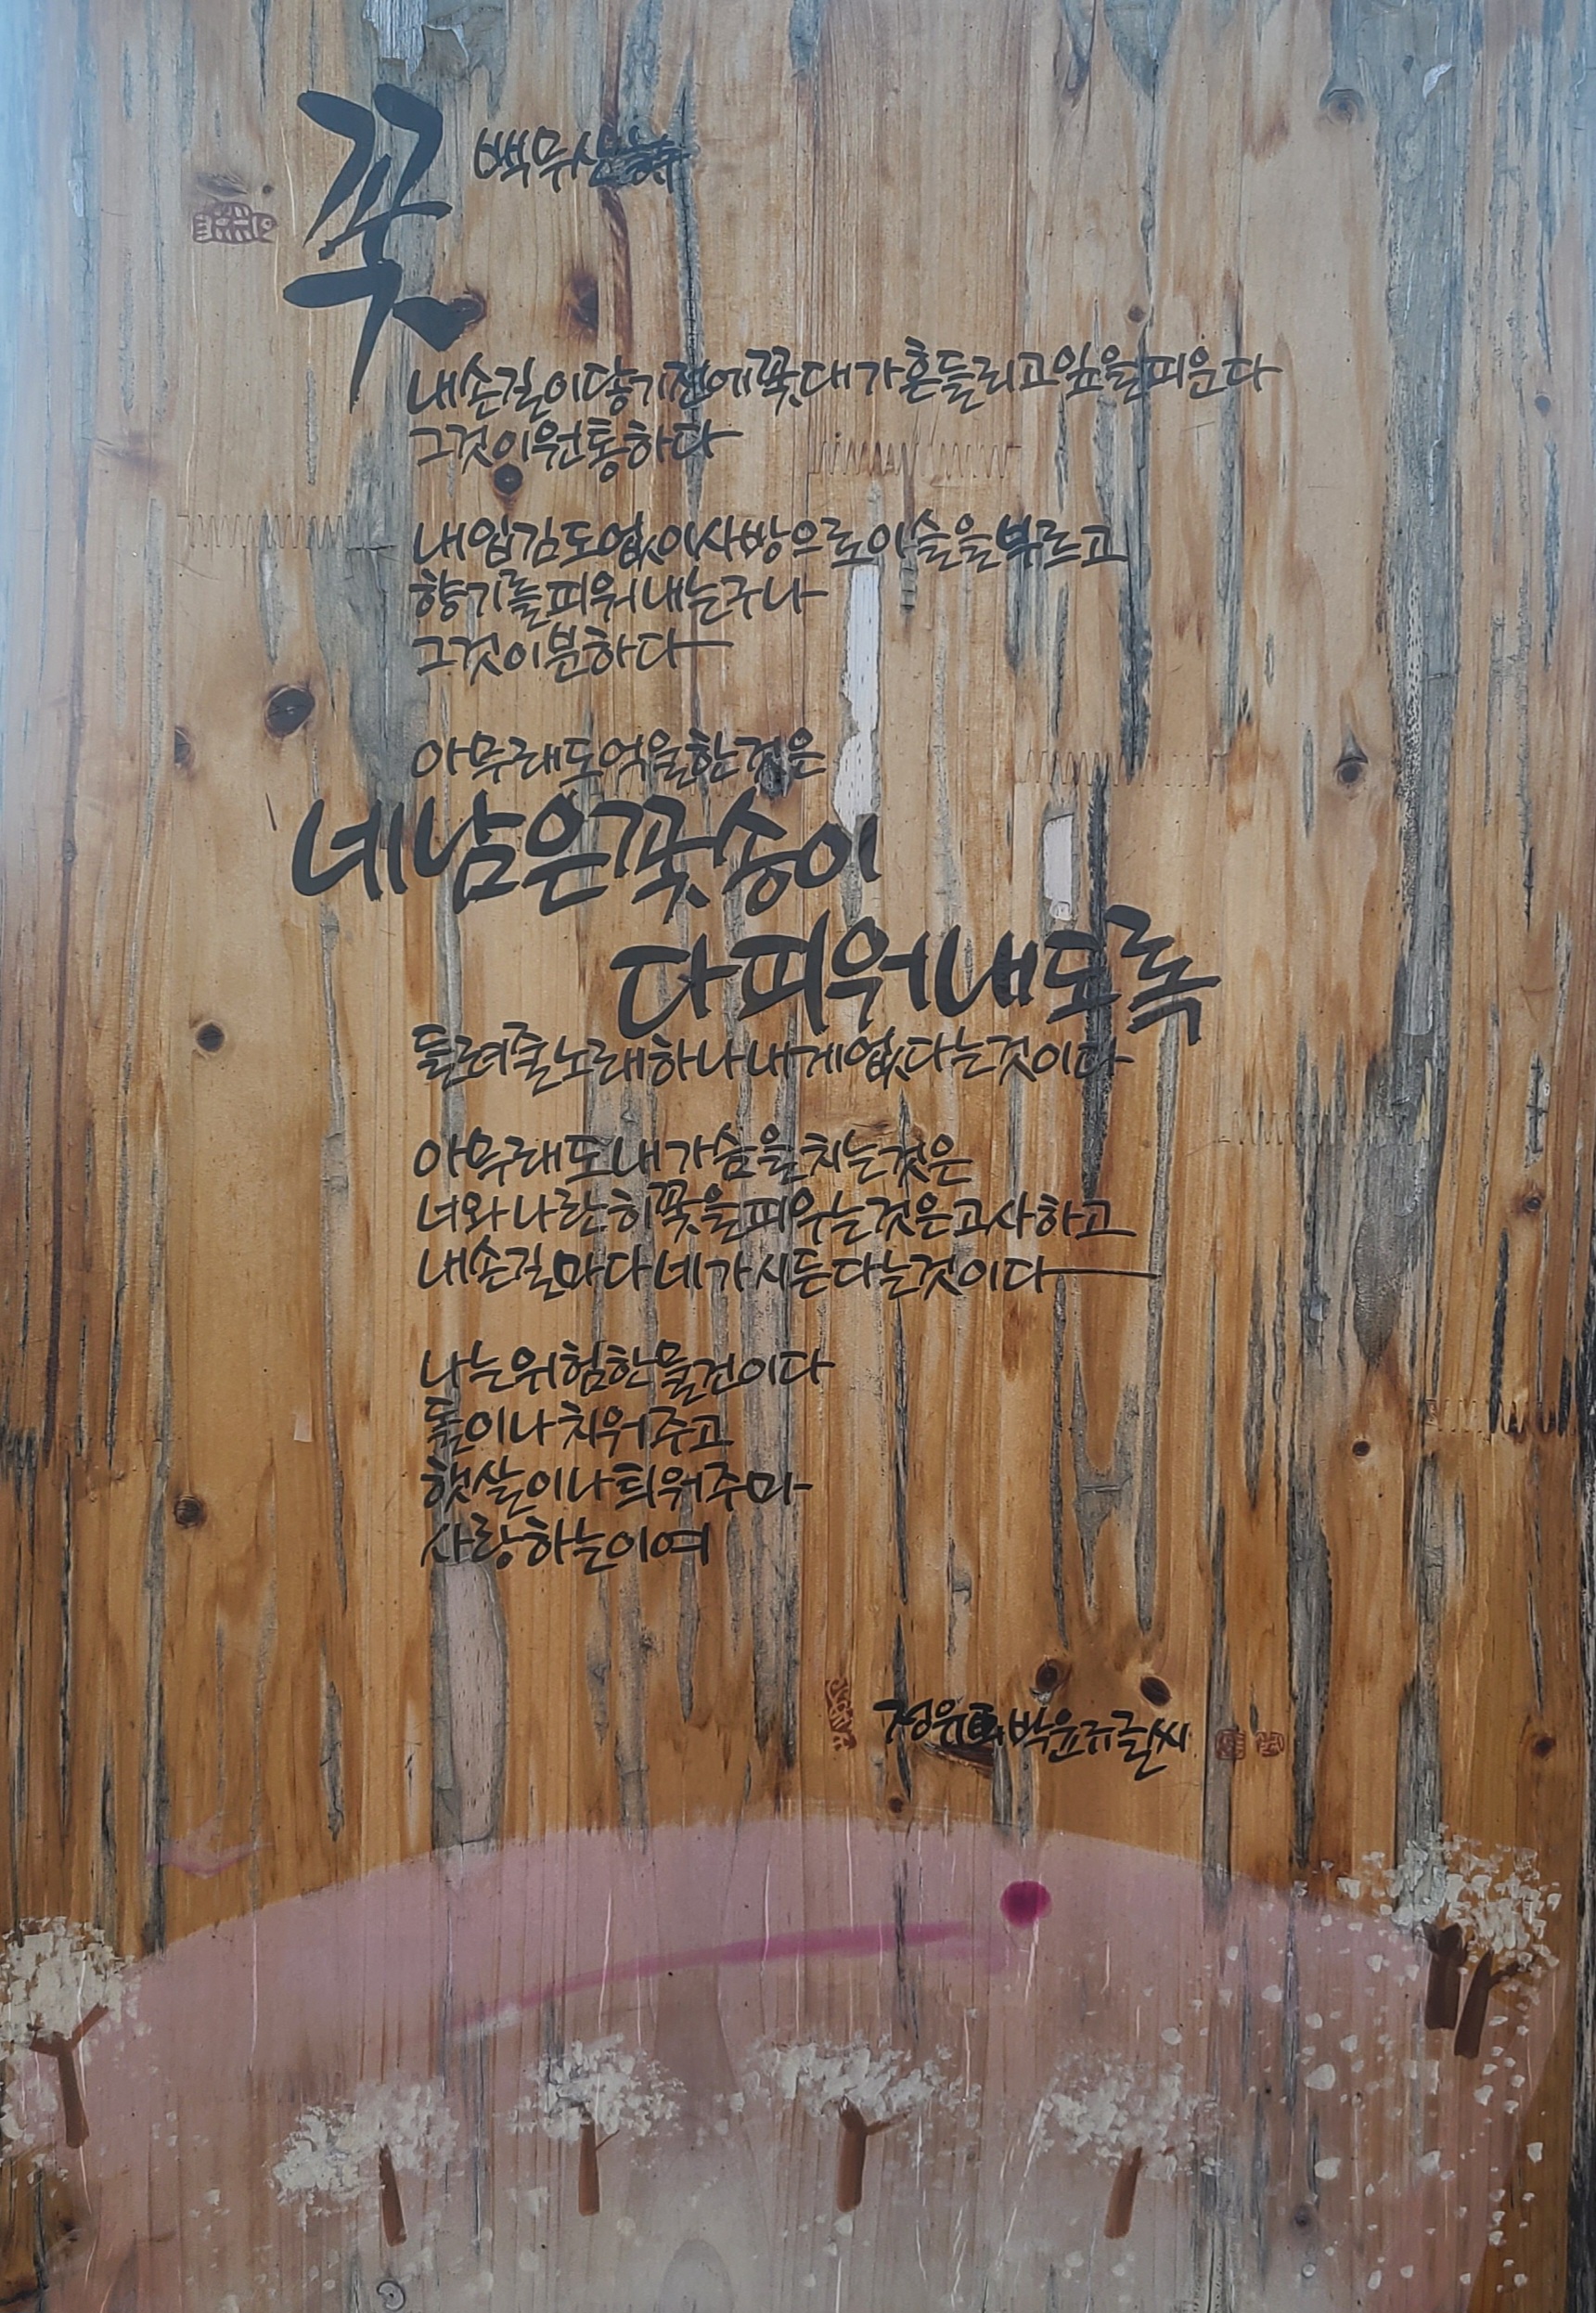 꽃 백무산 詩
내 손길이 닿기 전에 꽃대가 흔들리고 잎을 피운다
그것이 원통하다
내 입김도 없이 사방으로 이슬을 부르고
향기를 피워내는구나
그것이 분하다
아무래도 억울한 것은
네 남은 꽃송이
다 피워내도록
들려줄 노래 하나 내게 없다는 것이다
아무래도 내 가슴을 치는 것은
너와 나란히 꽃을 피우는 것은 고사하고
내 손길마다 네가 시든다는 것이다
나는 위험한 물건이다
돌이나 치워주고
햇살이나 틔워주마
사랑하는 이여
정유 박윤규 글씨